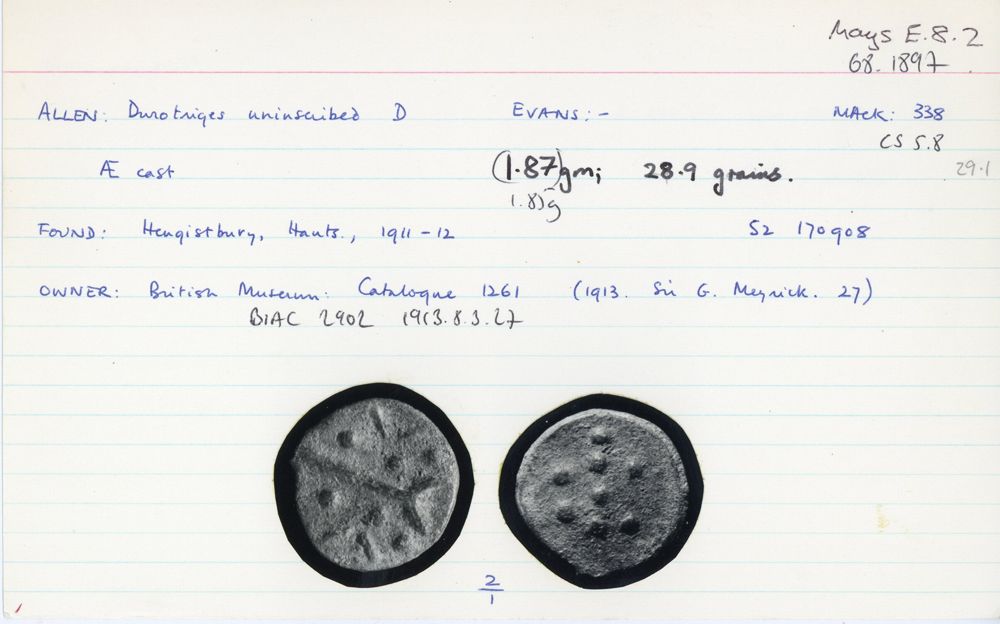 Mays E.8.2
68.1897
ALLEN: Durotriges uninscribed D EVANS: - MACK: 338
CS 5.8
Æ cast (1.87)gm; 28.9 grains. 29.1
FOUND: Hengistbury, Hants., 1911-12 SZ 170908
OWNER: British Museum: Catalogue 1261 (1913. Sir G. Meyrick. 27)
BIAC 2902 1913.8.3.27
2
1